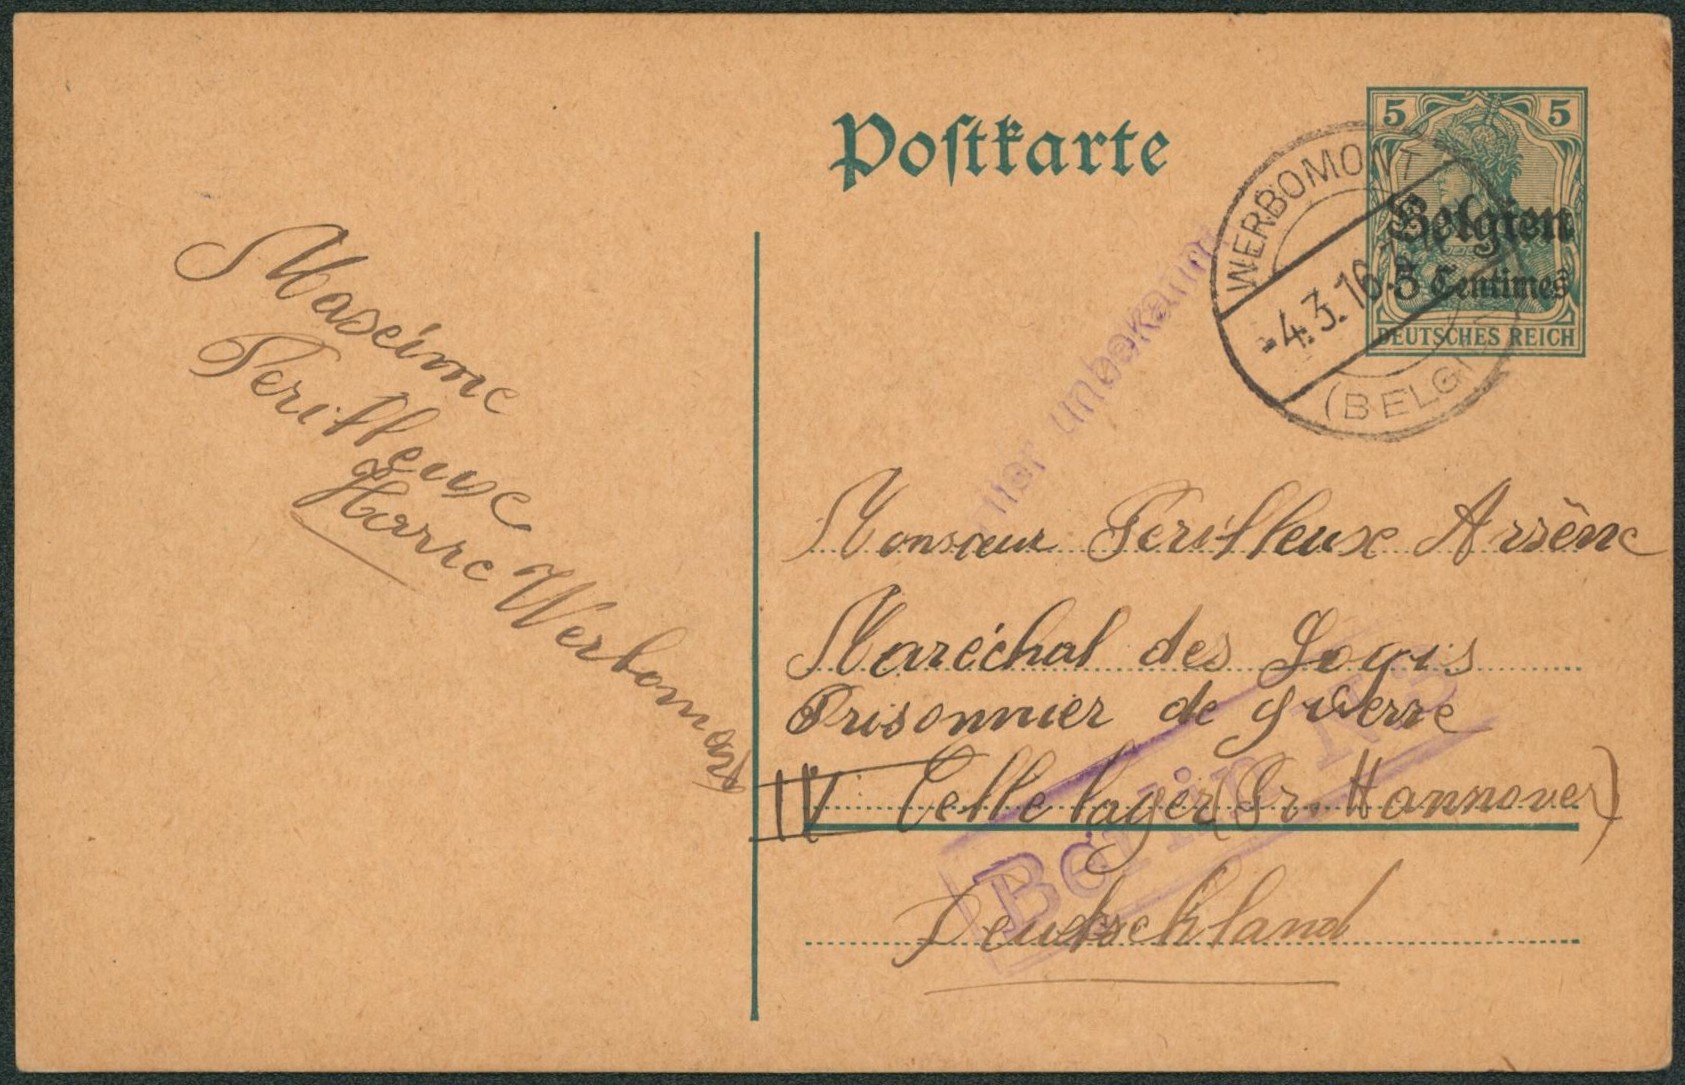 Postkarte
5 5
Belgien
5 Centimes
DEUTSCHES REICH
WERBOMONT
-4.3.16
(BELG
unbekannt
Maxime
Perilleux
Harre Werbomont
Monsieur Perilleux Arsène
Maréchal des Logis
Prisonnier de guerre
IV Celle lager (Pr. Hannover)
Deutschland
Berlin